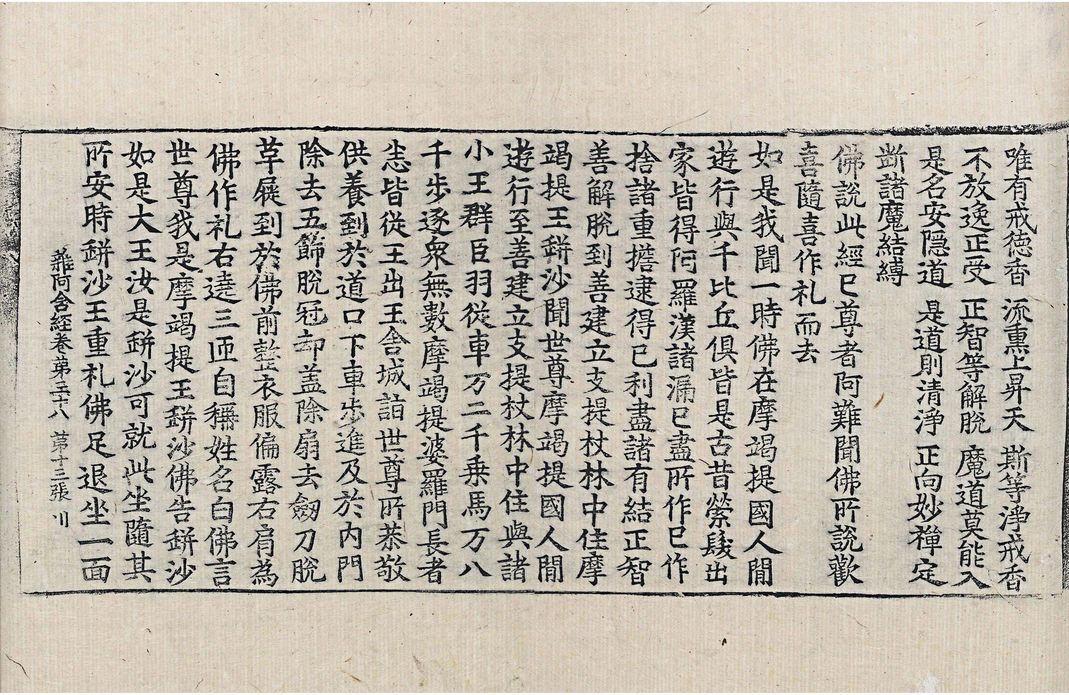 唯有戒徳香 流熏上昇天 斯等淨戒香
不放逸正受 正智等解脫 魔道莫能入
是名安隱道 是道則清淨 正向妙禪定
斷諸魔結縛
佛說此經已尊者阿難聞佛所說歡
喜隨喜作礼而去
如是我聞一時佛在摩竭提國人閒
遊行與千比丘俱皆是古昔縈髮出
家皆得阿羅漢諸漏已盡所作已作
捨諸重擔逮得已利盡諸有結正智
善解脫到善建立支提杖林中住摩
竭提王缾沙聞世尊摩竭提國人閒
遊行至善建立支提杖林中住與諸
小王群臣羽從車万二千乗馬万八
千步逐衆無數摩竭提婆羅門長者
悉皆從王出王舍城詣世尊所恭敬
供養到於道口下車步進及於內門
除去五飾脫冠却盖除扇去劔刀脫
草屣到於佛前整衣服偏露右肩為
佛作礼右遶三匝自稱姓名白佛言
世尊我是摩竭提王缾沙佛告缾沙
如是大王汝是缾沙可就此坐隨其
所安時缾沙王重礼佛足退坐一面
雜阿含經卷第三十八 第十三張 川